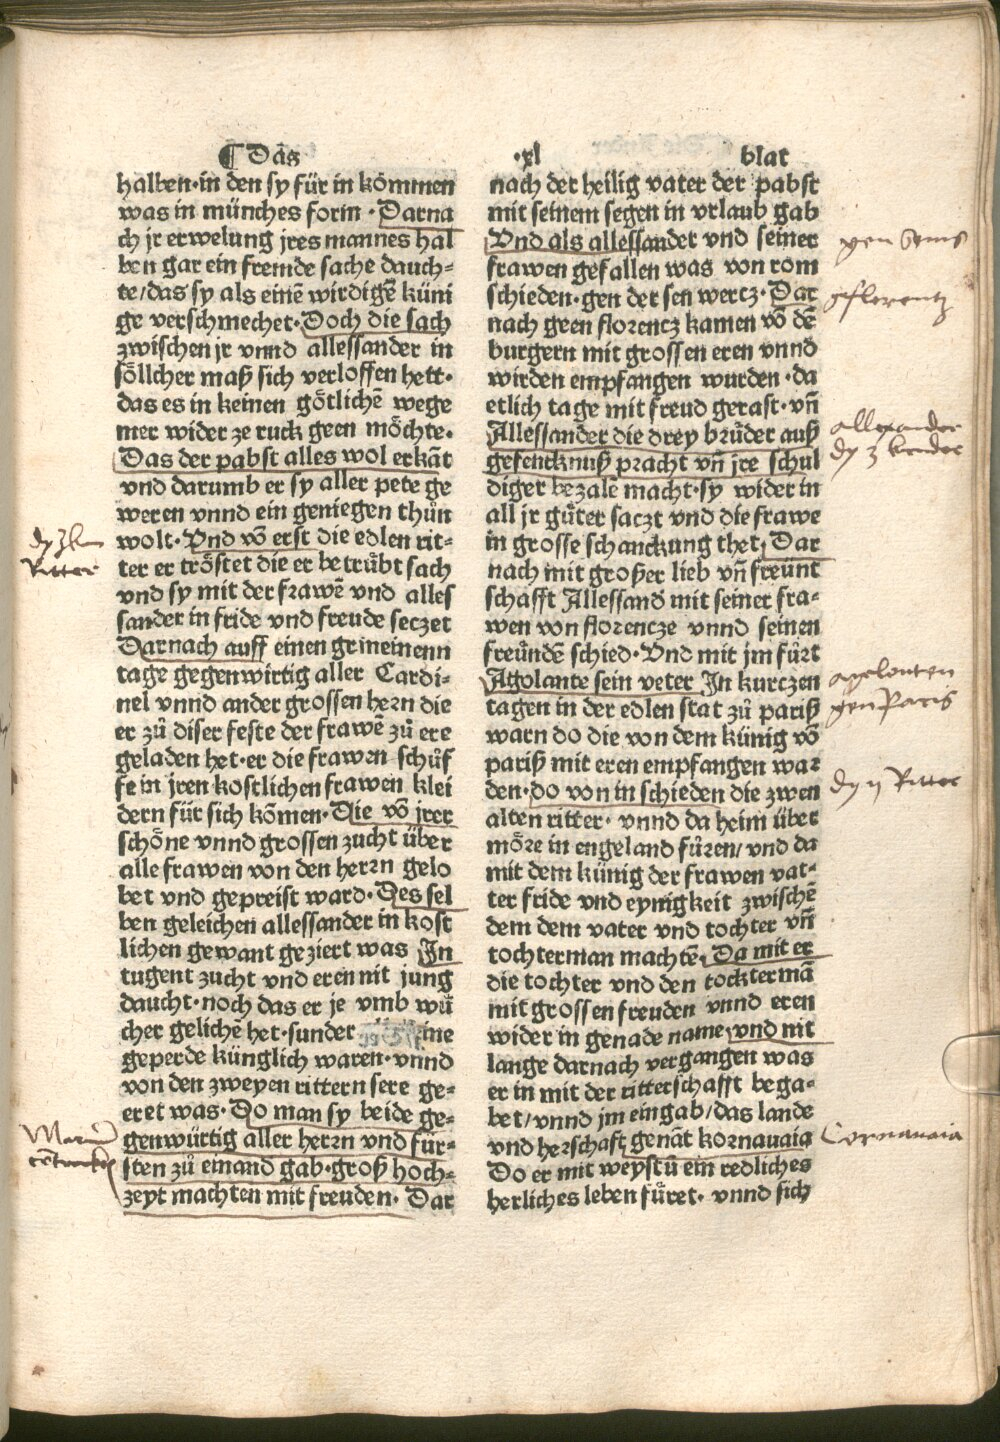 ¶ Das
.xl
blat
halben·in den sy für in kommen
was in münches form · Darna
ch jr erwelung jres mannes hal
ben gar ein fremde sache dauch⸗
te/das sy als einē wirdigē küni
ge verschmechet·Doch die sach
zwischen jr vnnd allessander in
söllcher maß sich verloffen hett·
das es in keinen götlichē wege
mer wider ze ruck geen möchte·
Das der pabst alles wol erkāt
vnd darumb er sy aller pete ge
weren vnnd ein geniegen thůn
wolt· Vnd vō erst die edlen rit⸗
ter er tröstet die er betrübt sach
vnd sy mit der frawē vnd alles
sander in fride vnd freude seczet
Darnach auff einen gemeinenn
tage gegenwirtig aller Cardi⸗
nel vnnd ander grossen hern die
er zů diser feste der frawē zů ere
geladen het·er die frawen schůf
fe in jren kostlichen frawen klei
dern für sich kōmen· Die vō jrer
schöne vnnd grossen zucht über
alle frawen von den herrn gelo
bet vnd gepreist ward· Des sel
ben geleichen allessander in kost
lichen gewant geziert was In
tugent zucht vnd eren nit jung
daucht·noch das er je vmb wů
cher gelichē het·sunder ine
geperde künglich waren·vnnd
von den zweyen rittern sere ge⸗
eret was· Do man sy beide ge⸗
genwürtig aller herrn vnd für⸗
sten zů einand gab·groß hoch⸗
zeyt machten mit freuden· Dar
nach der heilig vater der pabst
mit seinem segen in vrlaub gab
Vnd als allessander vnd seiner
frawen gefallen was von rom
schieden·gen der sen wercz· Dar
nach geen florencz kamen vō dē
burgern mit grossen eren vnnd
wirden empfangen wurden ·da
etlich tage mit freud gerast·vn̄
Allessander die drey brüder auß
gefencknuß pracht vn̄ jre schul
diger bezalē macht·sy wider in
all jr güter saczt vnd die frawe
in grosse schanckung thet· Dar
nach mit großer lieb vn̄ freunt
schafft Allessand mit seiner fra⸗
wen von florencze vnnd seinen
freündē schied· Vnd mit jm fůrt
Agolante sein veter In kurczen
tagen in der edlen stat zů pariß
warn do die von dem künig vō
pariß mit eren empfangen war
den·do von in schieden die zwen
alten ritter· vnnd da heim über
möre in engeland fůren/ vnd da
mit dem künig der frawen vat⸗
ter fride vnd eynigkeit zwischē
dem dem vater vnd tochter vn̄
tochterman machtē· Da mit er
die tochter vnd den tockter mā
mit grossen freuden vnnd eren
wider in genade name/vnd nit
lange darnach vergangen was
er in mit der ritterschafft bega⸗
bet/vnnd jm eingab/das lande
vnd herschaft genāt kornauaia
Do er mit weyſtū ein redliches
herliches leben fůret· vnnd sich
Ritter
gen Senis
gflorentz
allexander
dy 3 bruder
agolanten
gen Paris
dy ij Ritter
Cornauaia